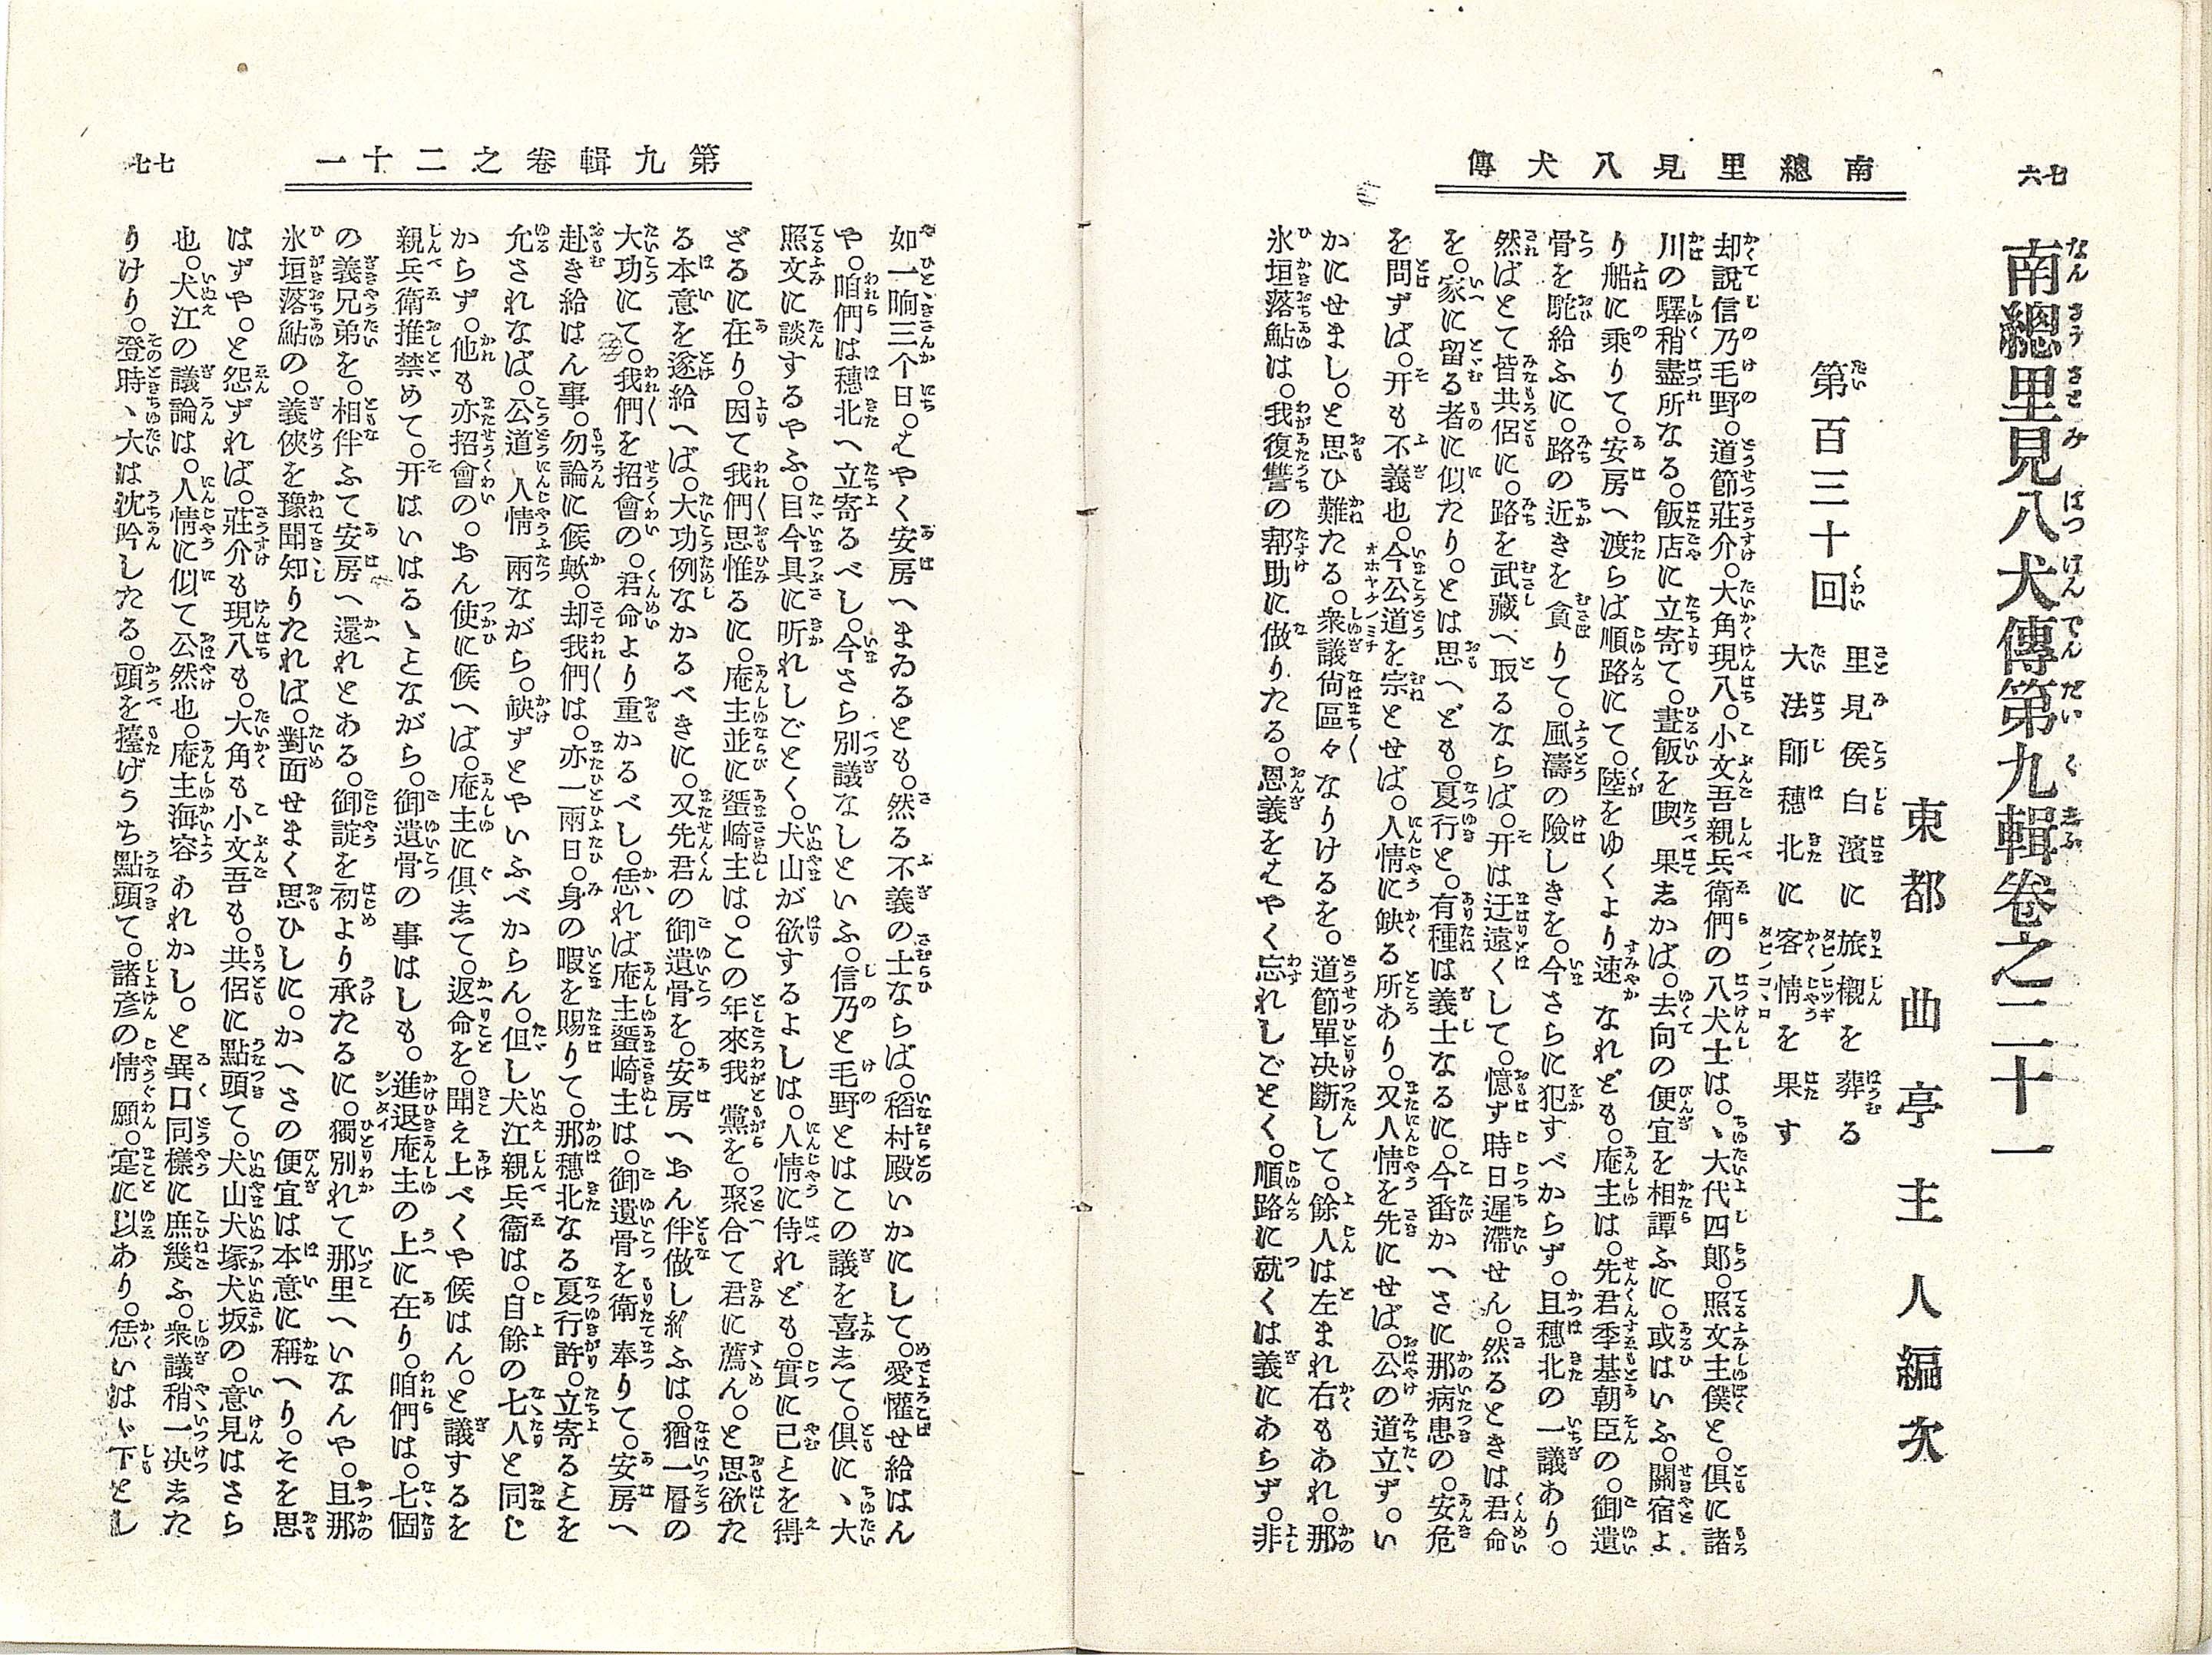 七六
南總里見八犬傳
南總里見八犬傳第九輯卷之二十一
東都 曲亭主人編次
第百三十回
里見侯白濱に旅櫬を葬る
大法師穗北に客情を果す
却說信乃毛野。道節莊介。大角現八。小文吾親兵衛們の八犬士は。丶大代四郎。照文主僕と。俱に諸
川の驛稍盡所なる。飯店に立寄て。晝飯を喫果しかば。去向の便宜を相譚ふに。或はいふ。關宿よ
り船に乘りて。安房へ渡らば順路にて。陸をゆくより速なれども。庵主は。先君季基朝臣の。御遺
骨を駝給ふに。路の近きを貪りて。風濤の險しきを。今さらに犯すべからず。且穗北の一議あり。
然ばとて皆共侶に。路を武藏へ取るならば。开は迂遠くして。憶ず時日遲滯せん。然るときは君命
を。家に留る者に似たり。とは思へども。夏行と。有種は義士なるに。今番かへさに那病患の。安危
を問ずば。开も不義也。今公道を宗とせば。人情に缺る所あり。又人情を先にせば。公の道立ず。い
かにせまし。と思ひ難たる。衆議尙區々なりけるを。道節單决斷して。餘人は左まれ右もあれ。那
氷垣落鮎は。我復讐の帮助に做りたる。恩義をはやく忘れしごとく。順路に就くは義にあらず。非
第九輯卷之二十一
七七
如一晌三个日。はやく安房へまゐるとも。然る不義の士ならば。稻村殿いかにして。愛懽せ給はん
や。咱們は穗北へ立寄るべし。今さら別議なしといふ。信乃と毛野とはこの議を喜して。俱に丶大
照文に談するやふ。目今具に听れしごとく。犬山が欲するよしは。人情に侍れども。實に已ことを得
ざるに在り。因て我們思惟るに。庵主並に蜑崎主は。この年來我黨を。聚合て君に薦ん。と思欲た
る本意を遂給へば。大功例なかるべきに。又先君の御遺骨を。安房へおん伴做し給ふは。猶一層の
大功にて。我們を招會の。君命より重かるべし。恁れば庵主蜑崎主は。御遺骨を衛奉りて。安房へ
赴き給はん事。勿論に候歟。却我們は。亦一兩日。身の暇を賜りて。那穗北なる夏行許。立寄ることを
允されなば。公道人情兩ながら。缺ずとやいふべからん。但し犬江親兵衞は。自餘の七人と同じ
からず。他も亦招會の。おん使に候へば。庵主に俱して。返命を。聞え上べくや候はん。と議するを
親兵衛推禁めて。开はいはるゝことながら。御遺骨の事はしも。進退庵主の上に在り。咱們は。七個
の義兄弟を。相伴ふて安房へ還れとある。御諚を初より承たるに。獨別れて那里へいなんや。且那
氷垣落鮎の。義俠を豫聞知りたれば。對面せまく思ひしに。かへさの便宜は本意に稱へり。そを思
はずや。と怨ずれば。莊介も現八も。大角も小文吾も。共侶に點頭て。犬山犬塚犬坂の。意見はさら
也。犬江の議論は。人情に似て公然也。庵主海容あれかし。と異口同樣に庶幾ふ。衆議稍一决した
りけり。登時丶大は沈吟したる。頭を擡げうち點頭て。諸彥の情願。寔に以あり。恁いはゞ下とし